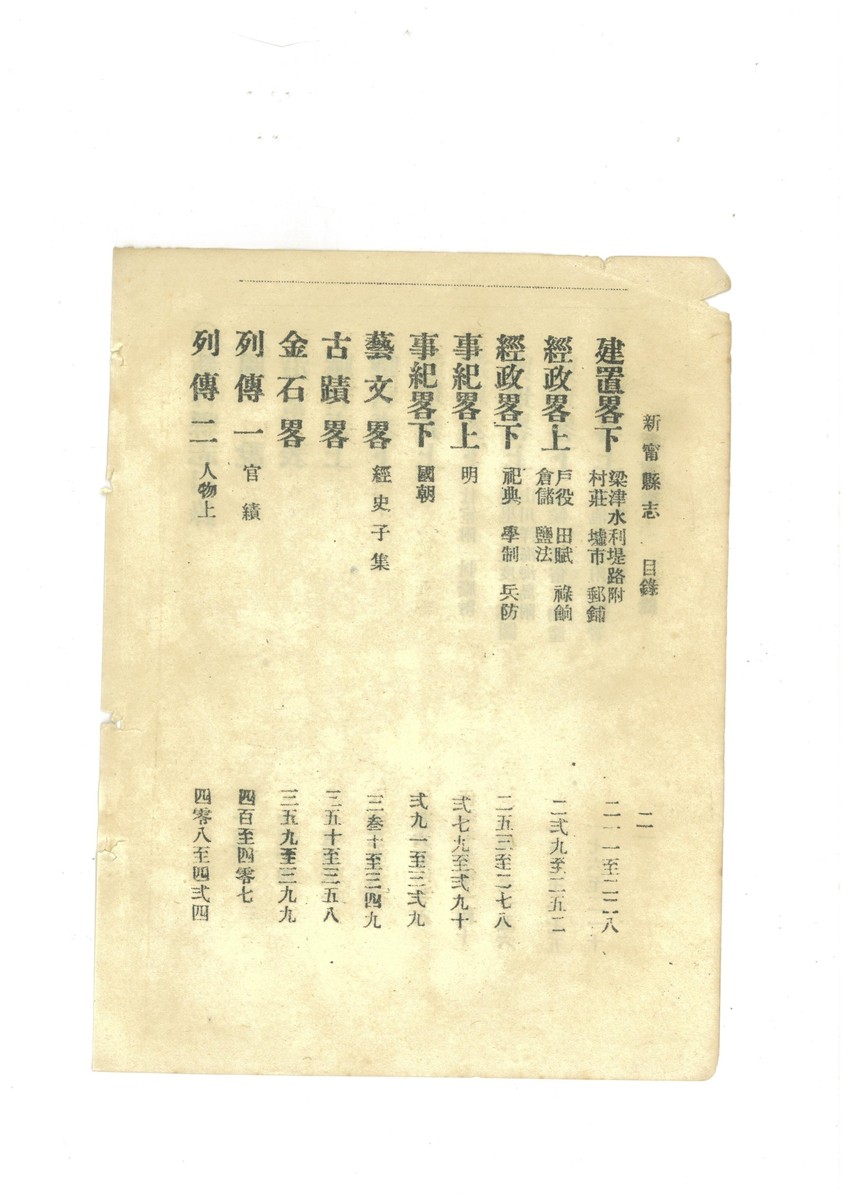 新甯縣志 目錄 二
建置畧下 梁津水利堤路附
村莊 墟市 郵鋪 二一一至二二八
經政畧上 戶役 田賦 祿餉
倉儲 鹽法 二弍九至二五二
經政畧下 祀典 學制 兵防 二五三至二七八
事紀畧上 明 弍七九至弍九十
事紀畧下 國朝 弍九一至三弍九
藝文畧 經史子集 三叁十至三四九
古蹟畧 三五十至三五八
金石畧 三五九至三九九
列傳一 官績 四百至四零七
列傳二 人物上 四零八至四弍四